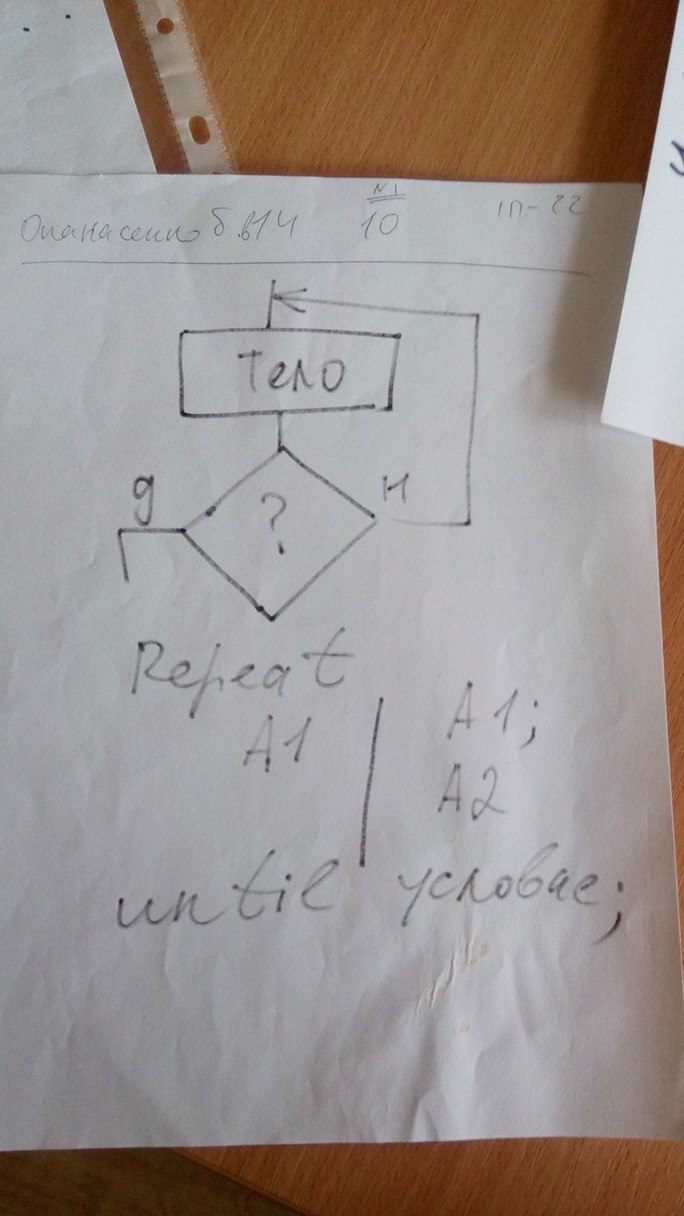 Опанасенко Б в14 №1 10 1П-22
Тело
д ? н
Repeat
A1 A1;
A2
until условие;